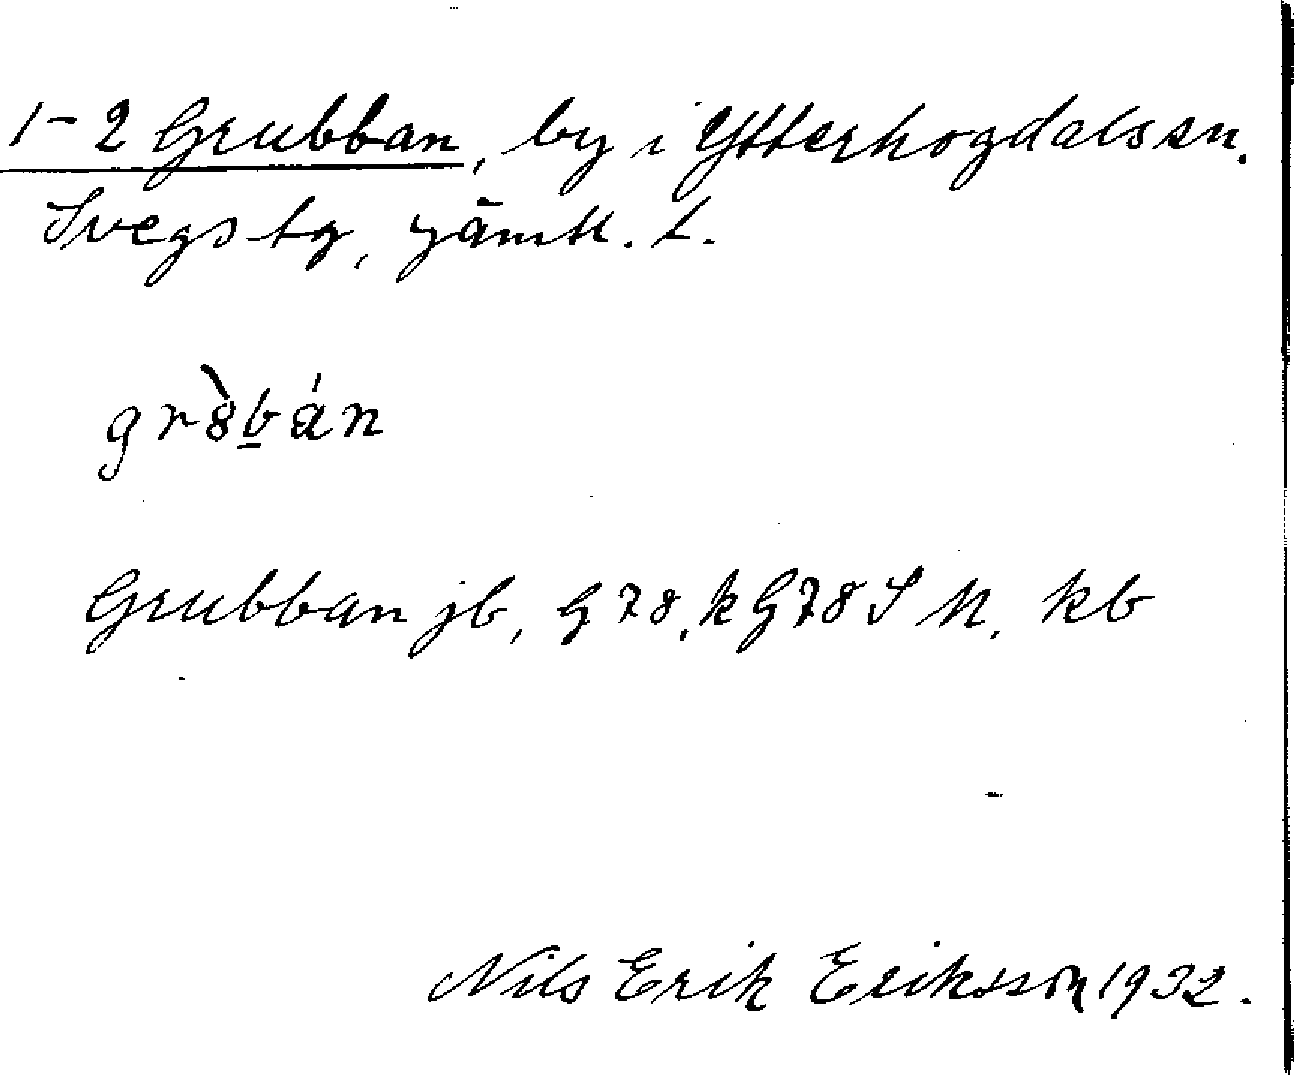 1-2 Grubban, by i Ytterhogdals sn.
Svegs tg, Jämtl. L.
gr8̀b̲án
Grubban jb, G78, kG78 S N. kb
Nils Erik Eriksson 1932.